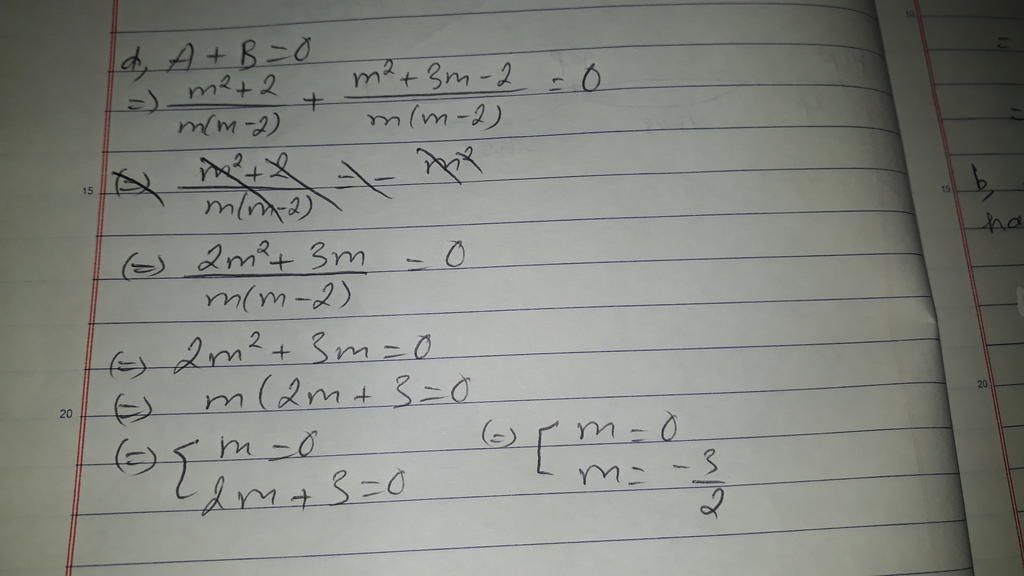 d, A + B = 0
=) m² + 2 / m(m - 2) + m² + 3m - 2 / m(m - 2) = 0
(=) m² + 2 / m(m - 2) = - m²
(=) 2m² + 3m / m(m - 2) = 0
(=) 2m² + 3m = 0
(=) m(2m + 3 = 0
(=) { m = 0 (=) [ m = 0
2m + 3 = 0 m = - 3/2
15
20
10
=
=
15 b,
20